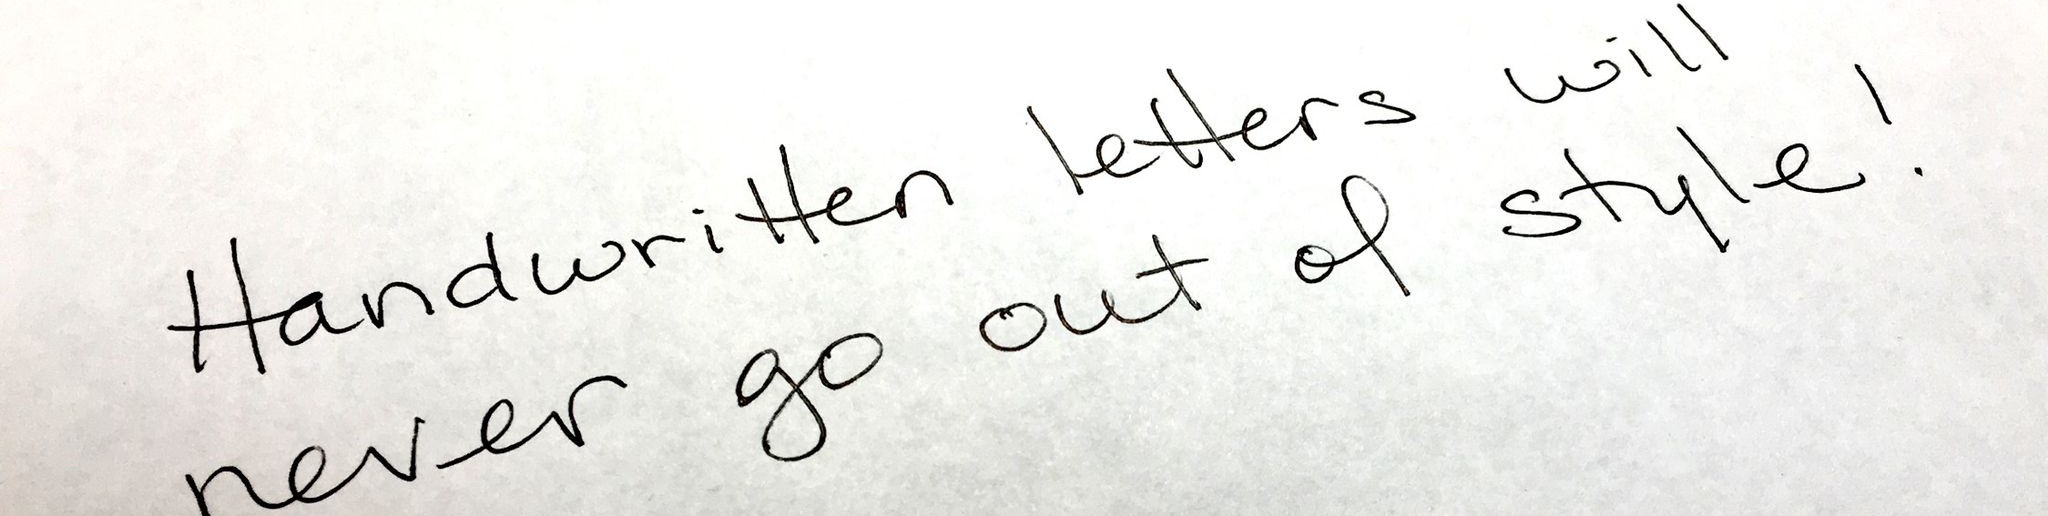 Handwritten letters will
never go out of style!